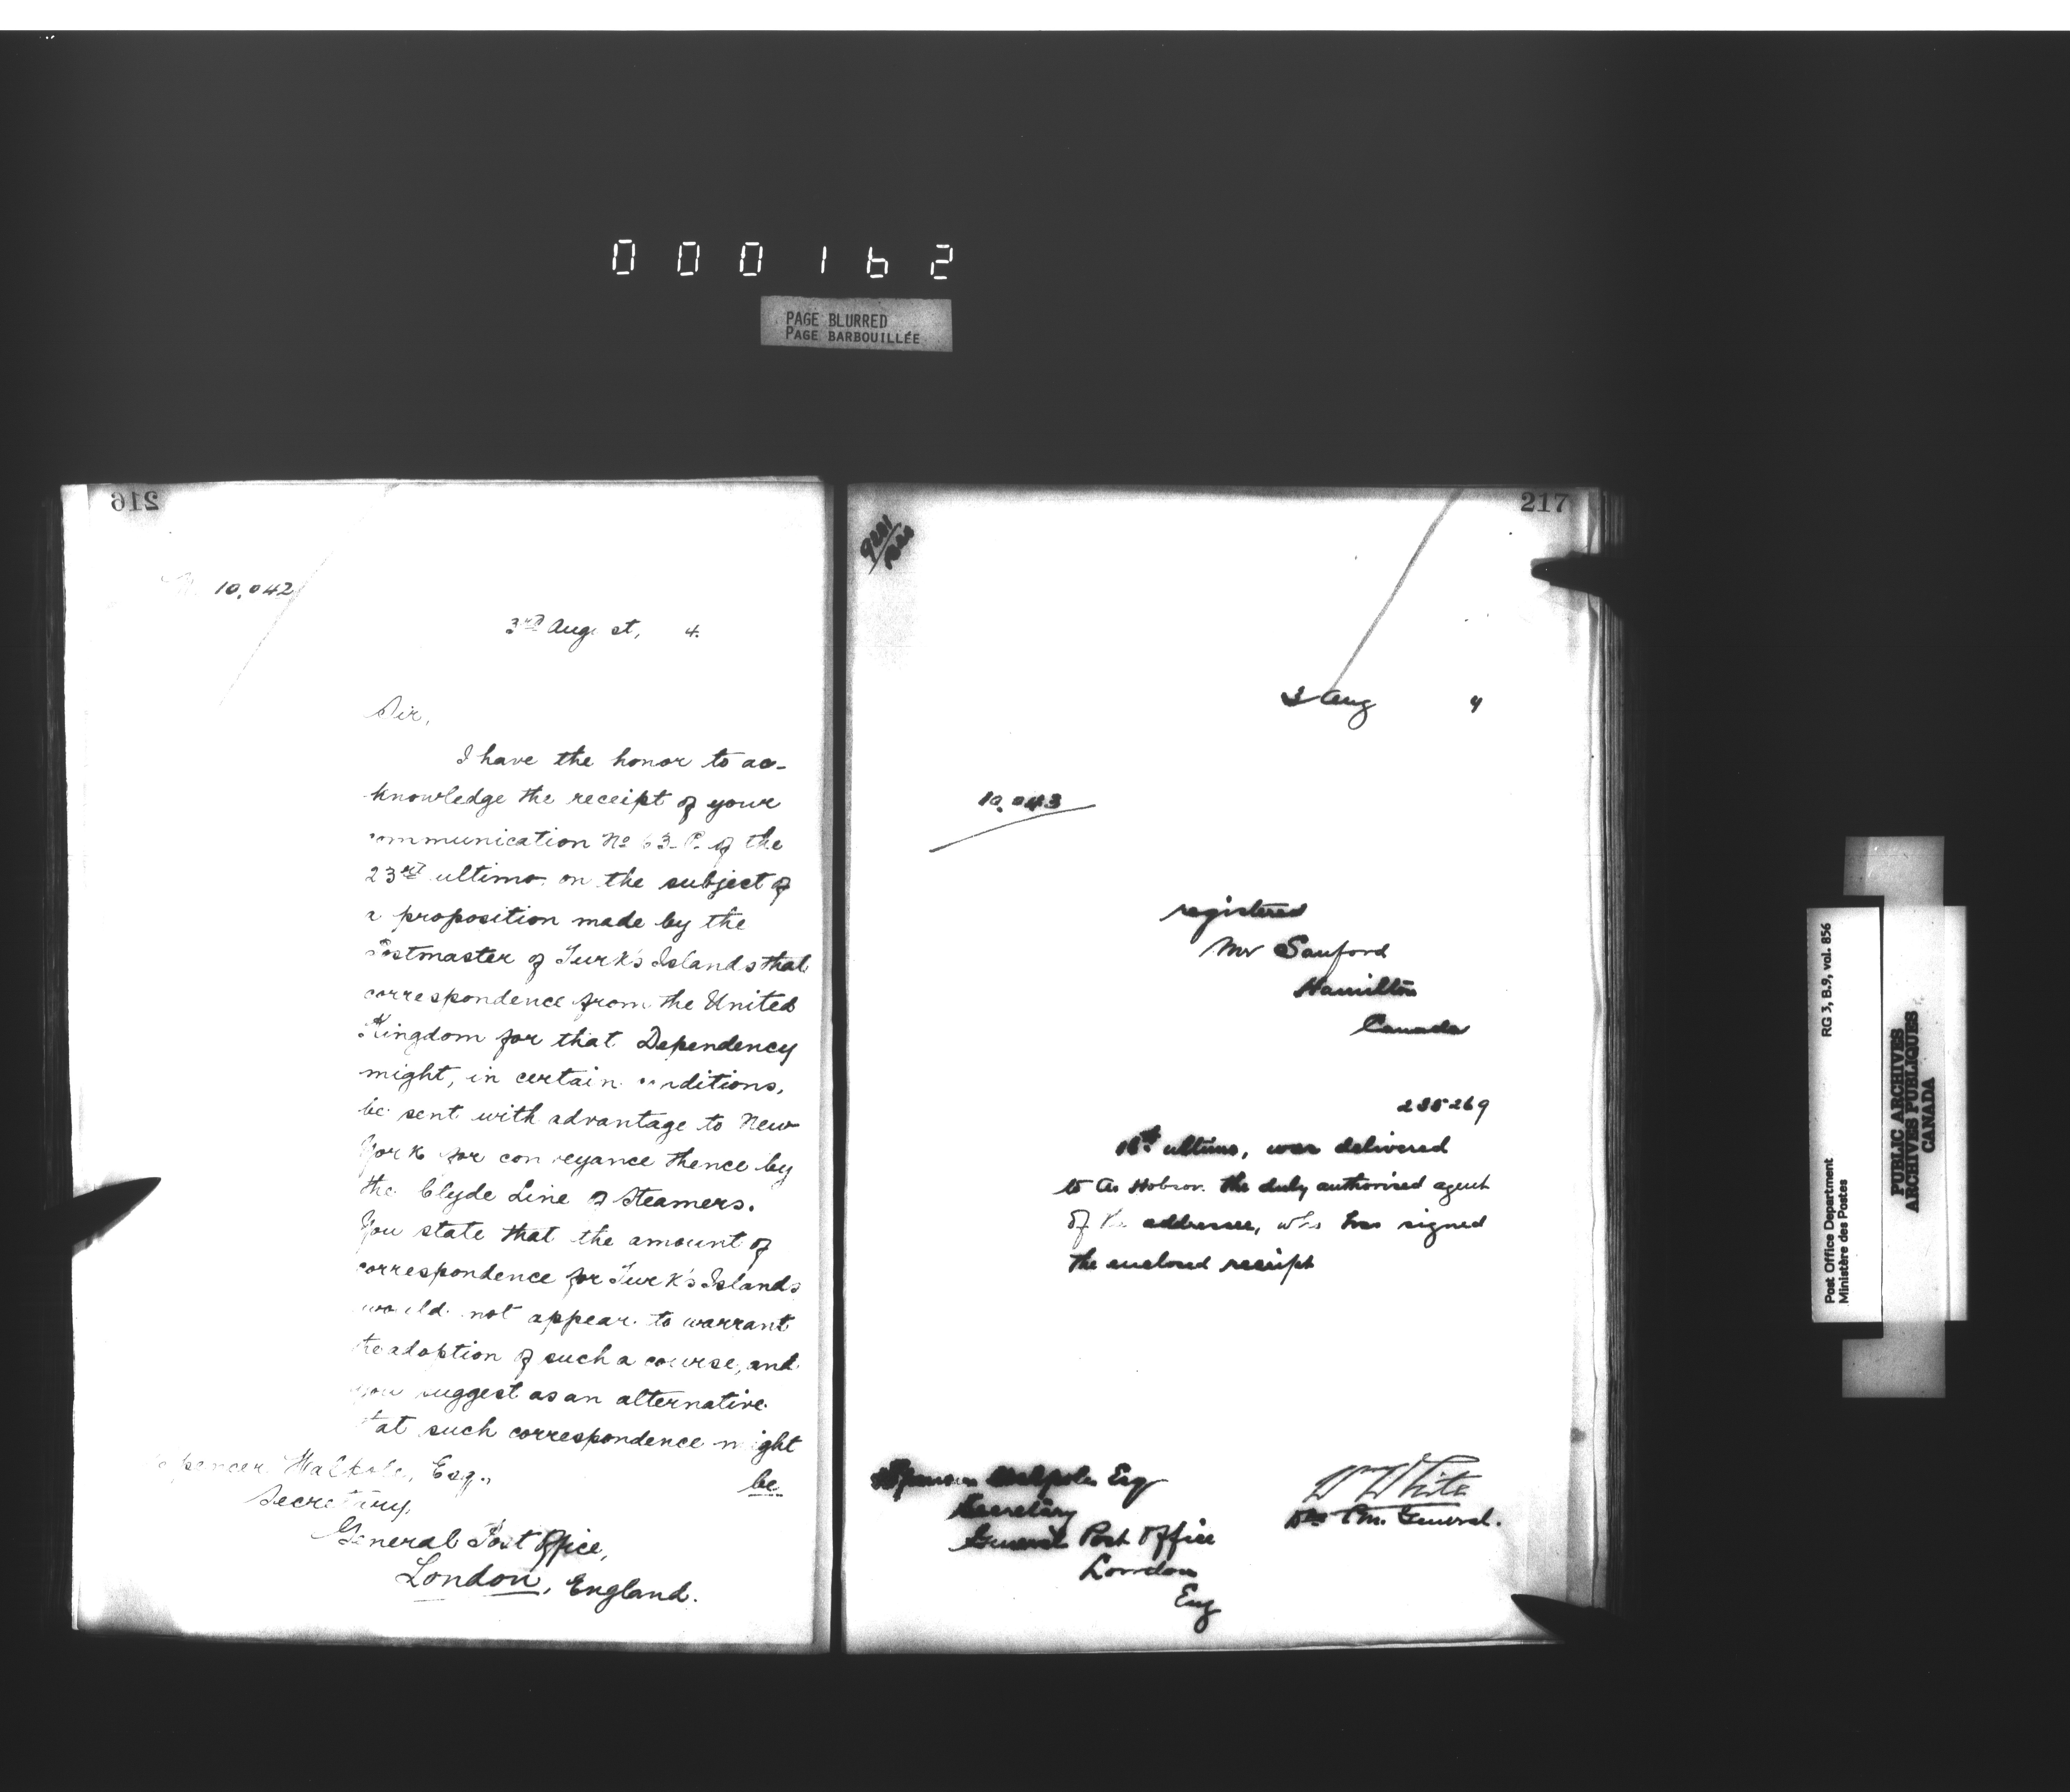 000162
PAGE BLURRED
PAGE BARBOUILLÉE
216
10,042
3rd August, 4.
Sir,
I have the honor to ac-
knowledge the receipt of your
communication No 63 of the
23rd ultimo on the subject of
a proposition made by the
Postmaster of Turk's Islands that
correspondence from the United
Kingdom for that Dependency
might, in certain conditions,
be sent with advantage to New
York for conveyance thence by
the Clyde Line of Steamers.
You state that the amount of
correspondence for Turk's Islands
would not appear to warrant
the adoption of such a course, and
you suggest as an alternative
that such correspondence might
be
Spencer Walpole, Esq.,
Secretary,
General Post Office,
London, England.
217
3 Aug 4
10,043
registered
Mr Sanford
Hamilton
Canada
235269
ultimo, was delivered
to As Hobson the duly authorised agent
of the addressee, who has signed
the enclosed receipt
Spencer Walpole Esq
Secretary
General Post Office
London
Eng
Wm White
P.M. General.
RG 3, B.9, vol. 856
Post Office Department
Ministère des Postes
PUBLIC ARCHIVES
ARCHIVES PUBLIQUES
CANADA